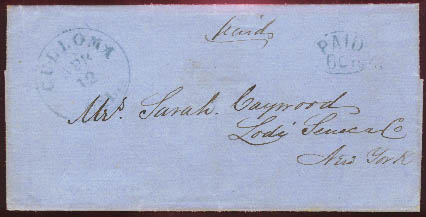 CULLOMA
APR
12
paid
PAID
Mrs. Sarah. Caywood
Lodi Seneca Co
New York